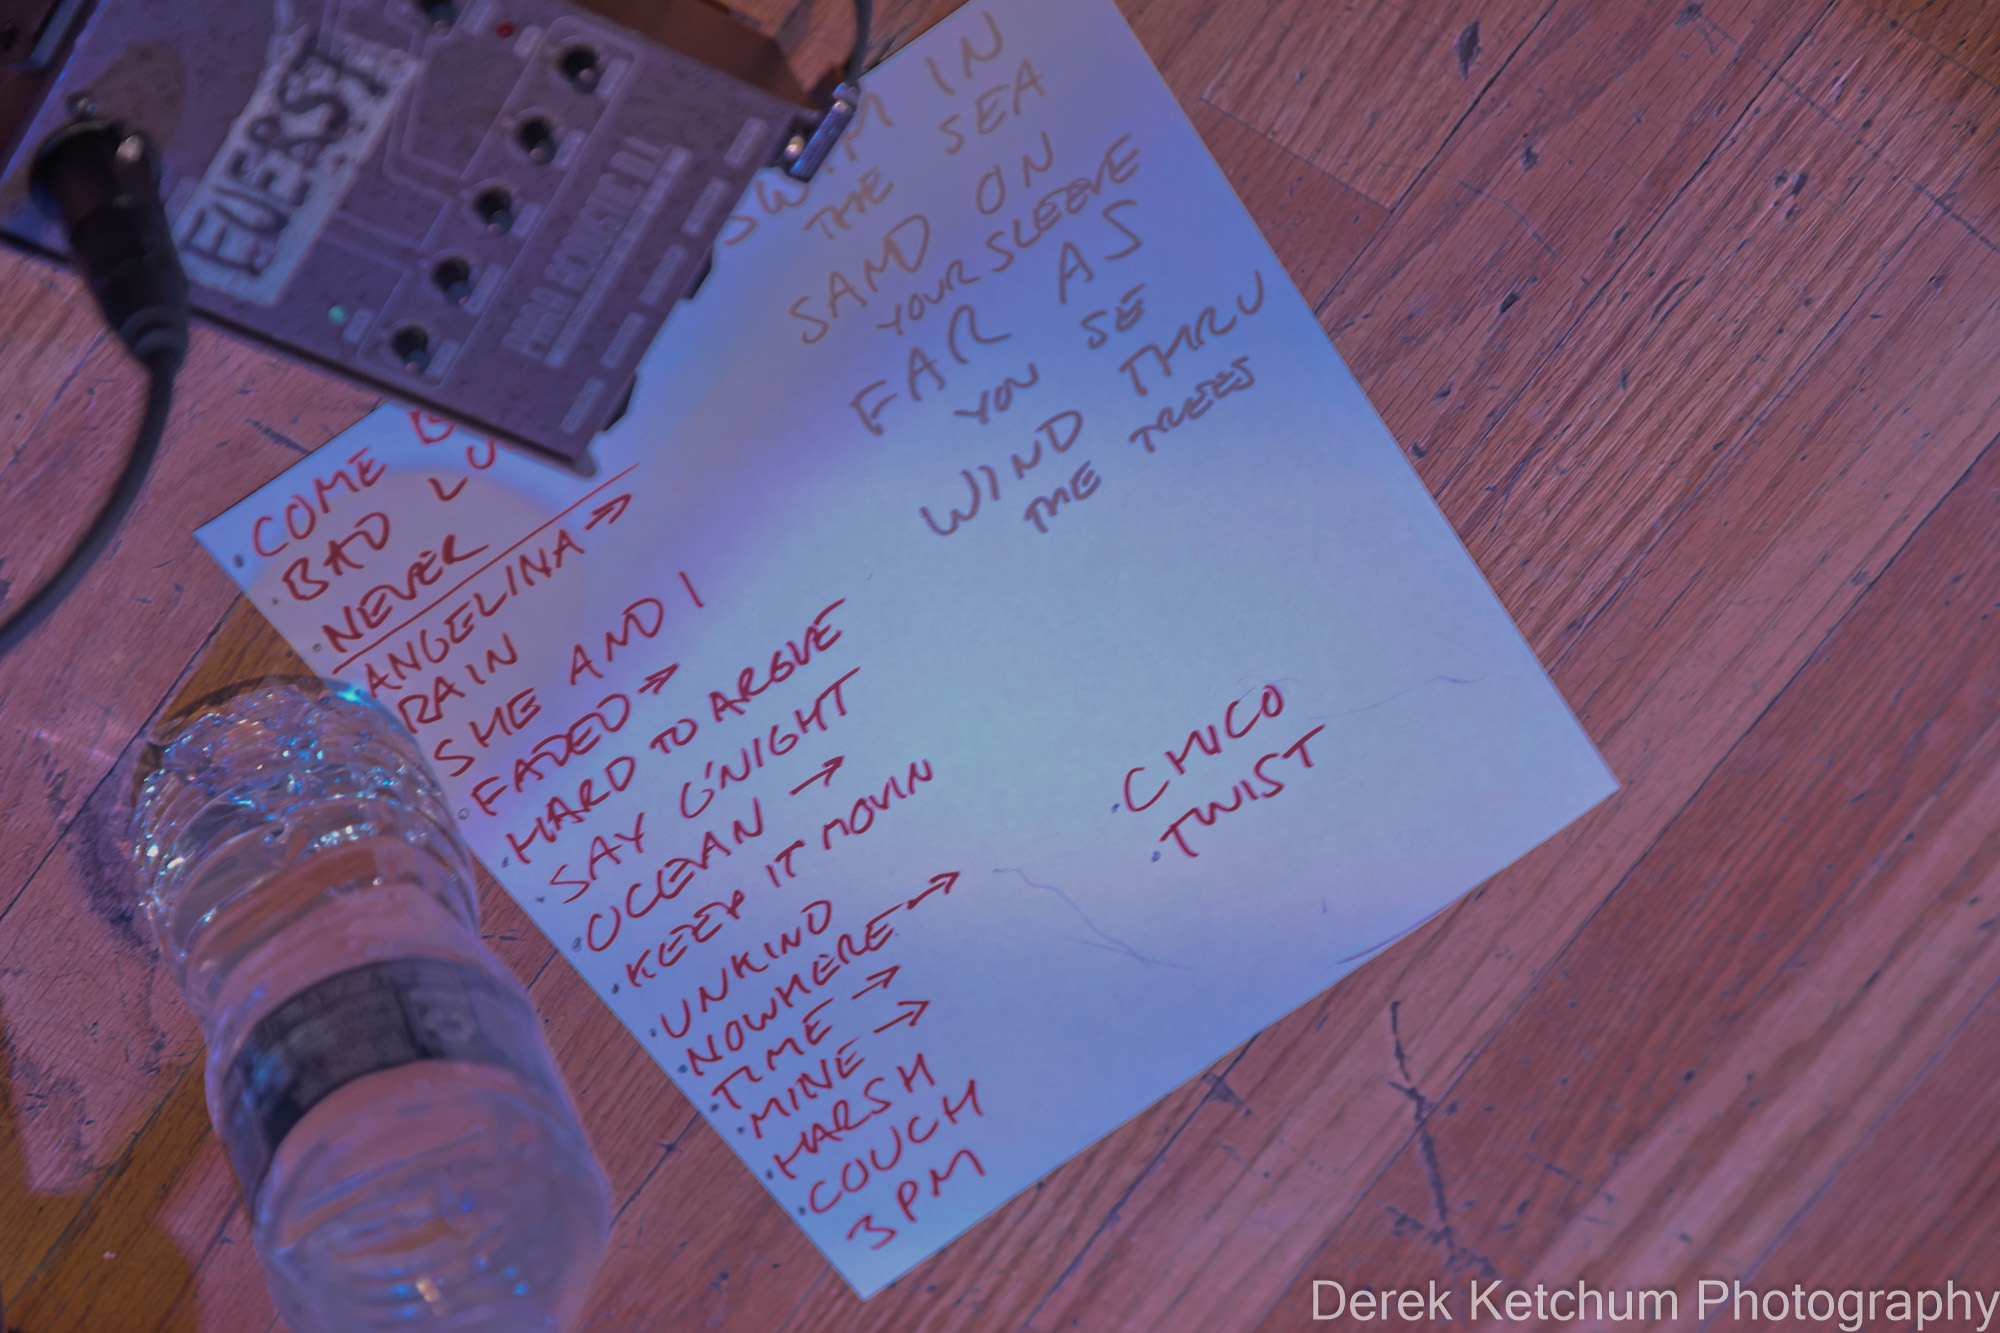 EVERSI
PARA ACOUSTIC D.I.
SWIM IN
THE SEA
SAND ON
YOUR SLEEVE
FAR AS
YOU SE
WIND THRU
THE TREES
COME
BAD
NEVER
ANGELINA →
RAIN
SHE AND I
FADED →
HARD TO ARGUE
SAY G'NIGHT
OCEAN →
KEEP IT MOVIN
UNKIND
NOWHERE →
TIME →
MINE →
HARSH
COUCH
3 PM
CHICO
TWIST
Derek Ketchum Photography